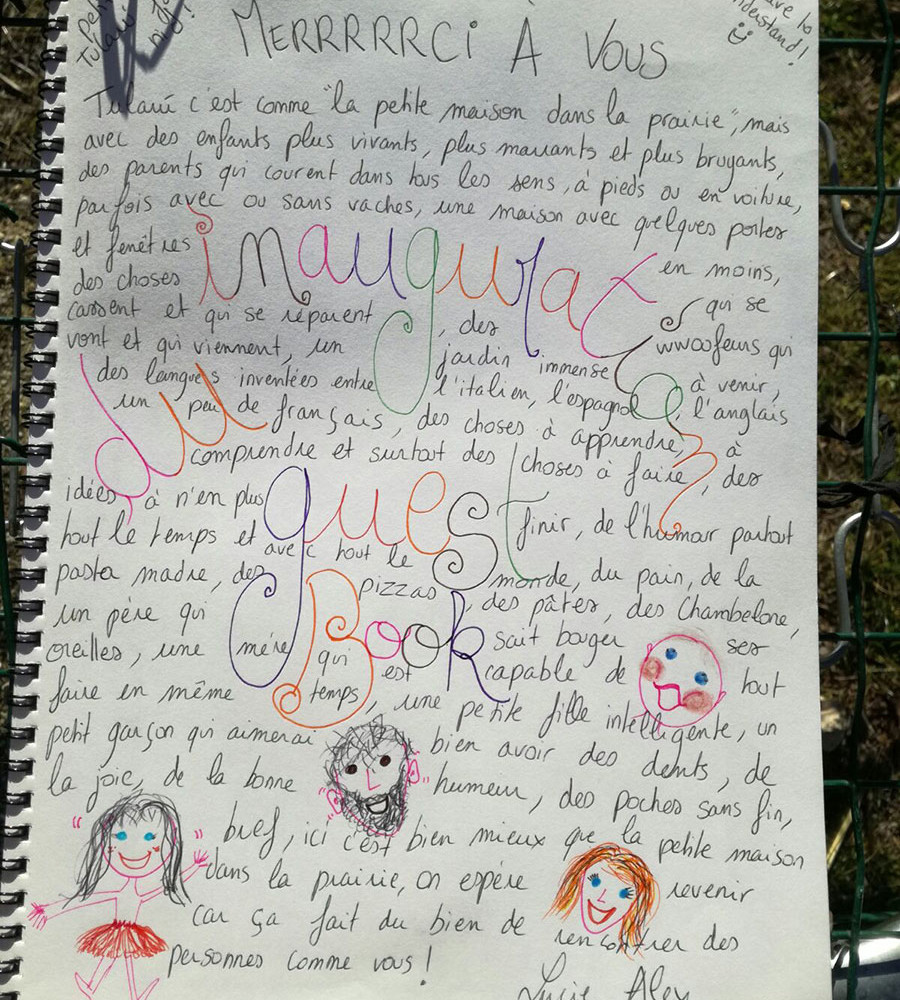 MERRRRRCi À VOUS
nderstand!
Tulaní c'est comme "la petite maison dans la prairie", mais
avec des enfants plus vivants, plus marrants et plus bruyants,
des parents qui courent dans tous les sens, à pieds ou en voiture,
parfois avec ou sans vaches, une maison avec quelques portes
et fenêtres en moins,
inauguration
des choses qui se
cassent et qui se réparent, des wwoofeurs qui
vont et qui viennent, un jardin immense à venir,
des langues inventées entre l'italien, l'espagnol, l'anglais
du
un peu de français, des choses à apprendre, à
comprendre et surtout des choses à faire, des
idées à n'en plus finir, de l'humour partout
guest
tout le temps et avec tout le monde, du pain, de la
pasta madre, des pizzas, des pâtes, des Chambelone,
Book
un père qui sait bouger ses
oreilles, une mère qui est capable de tout
faire en même temps, une petite fille intelligente, un
petit garçon qui aimerai bien avoir des dents, de
la joie, de la bonne humeur, des poches sans fin,
bref, ici c'est bien mieux que la petite maison
dans la prairie, on espère revenir
car ça fait du bien de rencontrer des
personnes comme vous !
Lucie Alex